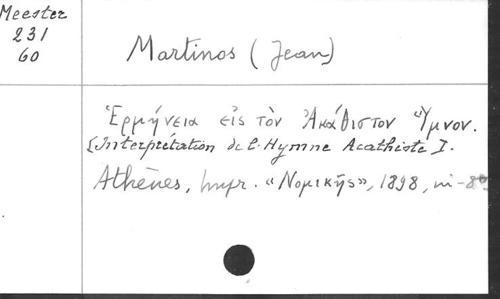 Meester
231
60
Martinos (Jean)
Ἑρμήνεια εἰς τὸν Ἀκάθιστον Ὕμνον.
[Interprétation de l'Hymne Acathiste].
Athènes, Impr. «Νομικῆς», 1898, in-8º